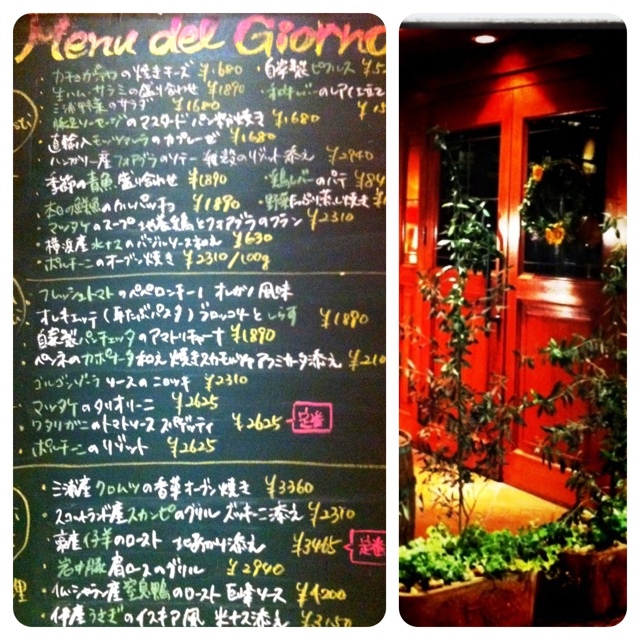 Menu del Giorno
の焼きチーズ ¥1680 ・自家製ピクルス
生ハム・サラミの盛り合わせ ¥1890
三浦野菜のサラダ ¥1680
豚足ソーセージのマスタードパン粉焼き ¥1680
・直輸入モッツァレラのカプレーゼ ¥1680
・ハンガリー産フォアグラのソテー 雑穀のリゾット添え ¥2940
季節の青魚盛り合わせ ¥1890 ・鶏レバーのパテ ¥84
・本日の鮮魚のカルパッチョ ¥1890
・マツタケのスープ 地養鶏とフォアグラのフラン ¥2310
・横浜産水ナスのバジルソース和え ¥630
・ポルチーニのオーブン焼き ¥2310/100g
・フレッシュトマトのペペロンチーノ オレガノ風味
オレキエッテ(耳たぶパスタ)ブロッコリーとしらす ¥1890
自家製パンチェッタのアマトリチャーナ ¥1890
・ペンネのカポナータ和え 焼きスカモルツァ 添え ¥210
ゴルゴンゾーラソースのニョッキ ¥2310
・マツタケのタリオリーニ ¥2625
・ワタリガニのトマトソース スパゲッティ ¥2625 定番
・ポルチーニのリゾット ¥2625
・三浦産クロムツの香草オーブン焼き ¥3360
・スコットランド産スカンピのグリル ズッキーニ添え ¥2310
産仔羊のロースト 添え ¥3465 定番
・岩中豚 肩ロースのグリル ¥2940
・仏シャラン産窒息鴨のロースト 巨峰ソース ¥4200
・伊産うさぎのイスキア風 米ナス添え ¥3150
理